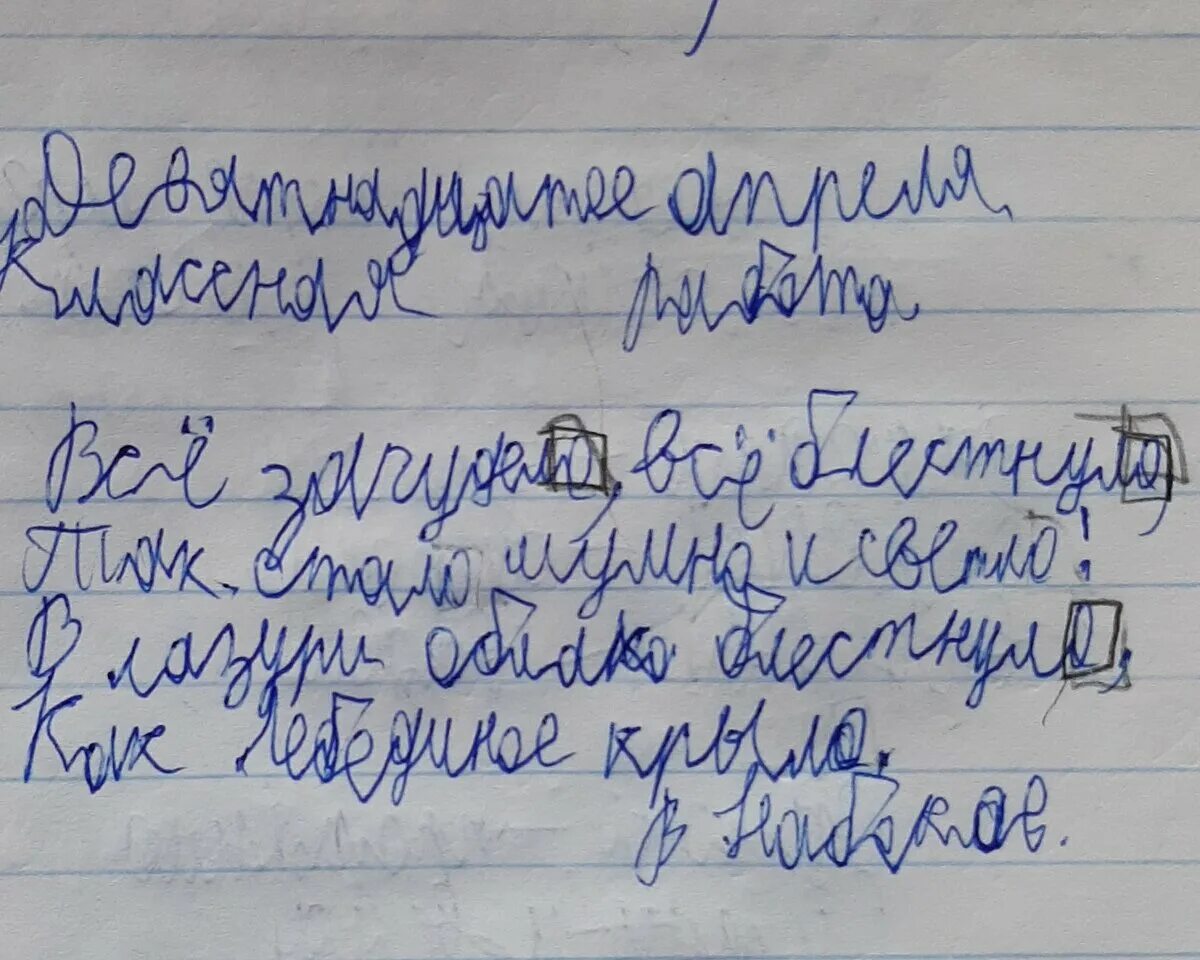 Девятнадцатое апреля.
Класеная работа
Всё зачудело, всё блестнуло,
Так стало шумно и светло!
В лазури облако блестнуло,
Как лебединое крыло.
В Набоков.